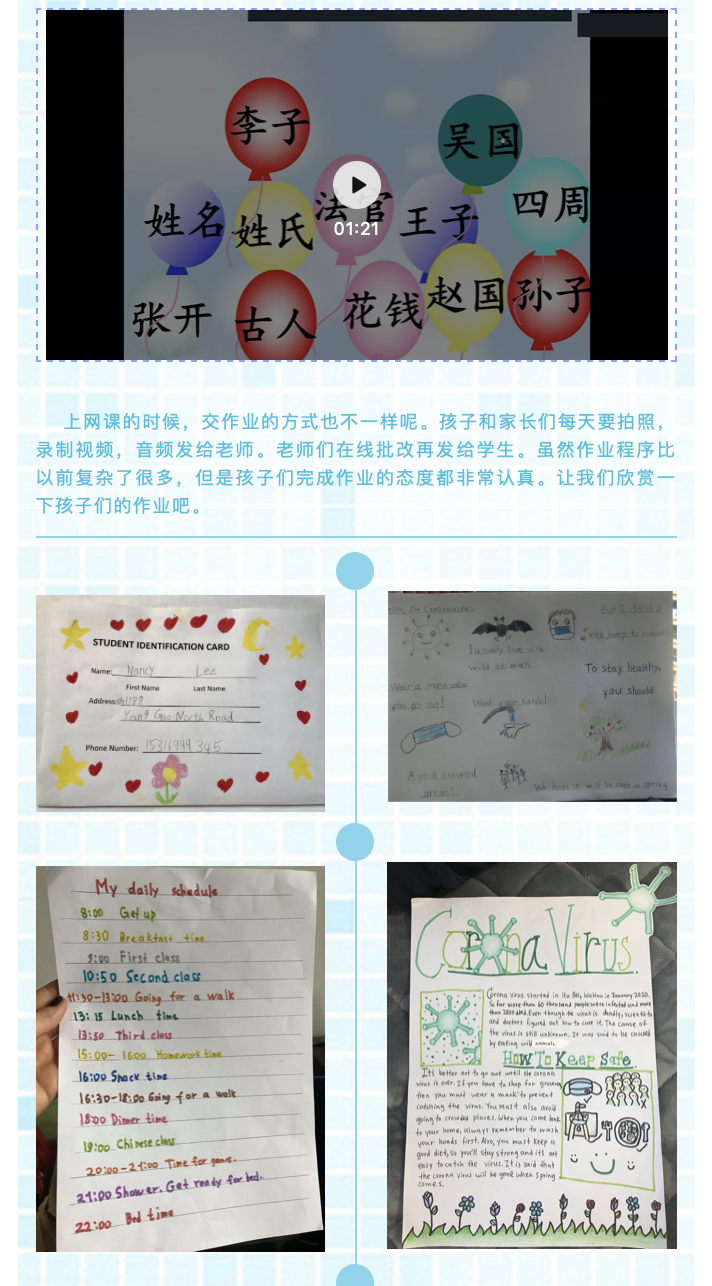 李子
吴国
姓名
姓氏
法官
王子
四周
01:21
张开
古人
花钱
赵国
孙子
上网课的时候，交作业的方式也不一样呢。孩子和家长们每天要拍照，
录制视频，音频发给老师。老师们在线批改再发给学生。虽然作业程序比
以前复杂了很多，但是孩子们完成作业的态度都非常认真。让我们欣赏一
下孩子们的作业吧。
STUDENT IDENTIFICATION CARD
Name: Nancy Lee
First Name Last Name
Address:
Yang Gao North Road
Phone Number: 15316999345
Coronavirus
I usually live in
wild animals
But I decided
to jump to humans
Wear a mask when
you go out!
Wash your hands!
To stay healthy,
you should
Avoid crowed
areas!
We hope it will be over in spring
My daily schedule
8:00 Get up
8:30 Breakfast time
9:00 First class
10:50 Second class
11:30-13:00 Going for a walk
13:15 Lunch time
13:50 Third class
15:00-16:00 Homework time
16:00 Snack time
16:30-18:00 Going for a walk
18:00 Dinner time
19:00 Chinese class
20:00-21:00 Time for games.
21:00 Shower. Get ready for bed.
22:00 Bed time
Corona Virus.
Corona virus started in Hu Bei, WuHan in January 2020.
So far more than 60 thousand people were infected and more
than 2000 died. Even though the virus is deadly, scientists
and doctors figured out how to cure it. The cause of
the virus is still unknown. It was said to be caused
by eating wild animals.
How To Keep Safe.
It's better not to go out until the corona
virus is over. If you have to shop for groceries
then you must wear a mask to prevent
catching the virus. You must also avoid
going to crowded places. When you come back
to your home, always remember to wash
your hands first. Also, you must keep a
good diet, so you'll stay strong and its not
easy to catch the virus. It is said that
the corona virus will be gone when Spring
comes.